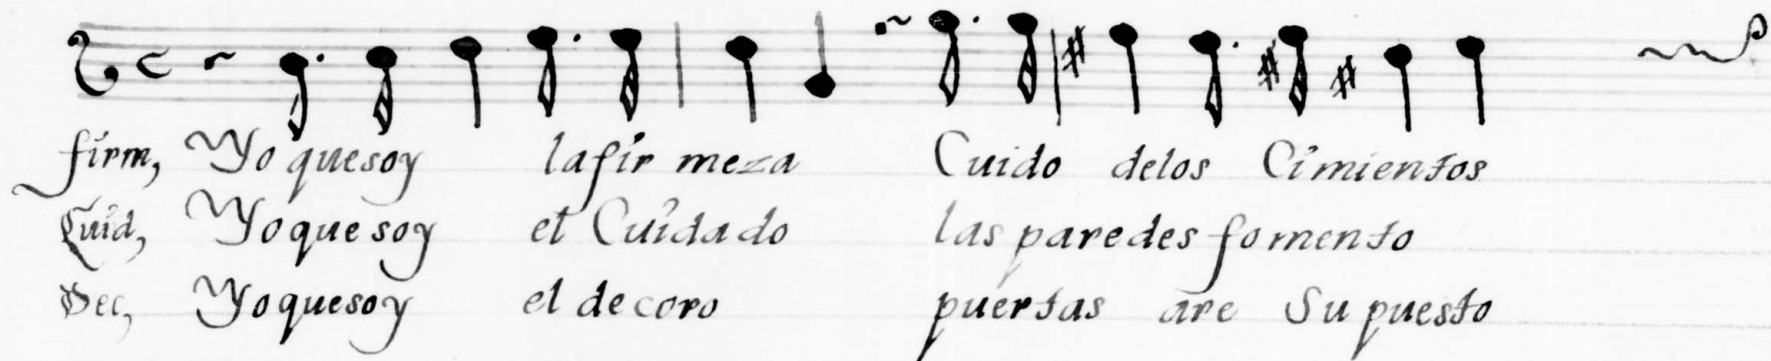 firm, Yo que soy la fir meza Cuido delos Cimientos
Cuid, Yo que soy el Cuidado las paredes fo mento
Dec, Yo que soy el de coro puertas are Su puesto